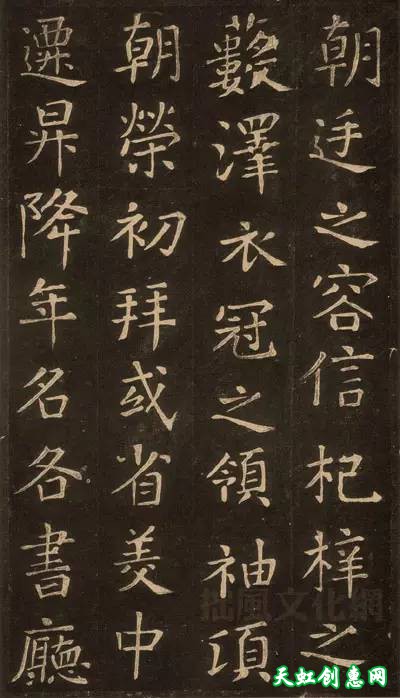 朝廷之容信杞梓之
藪澤衣冠之領袖頃
朝榮初拜或省美中
遷昇降年名各書廳
拙風文化網
天虹创惠网